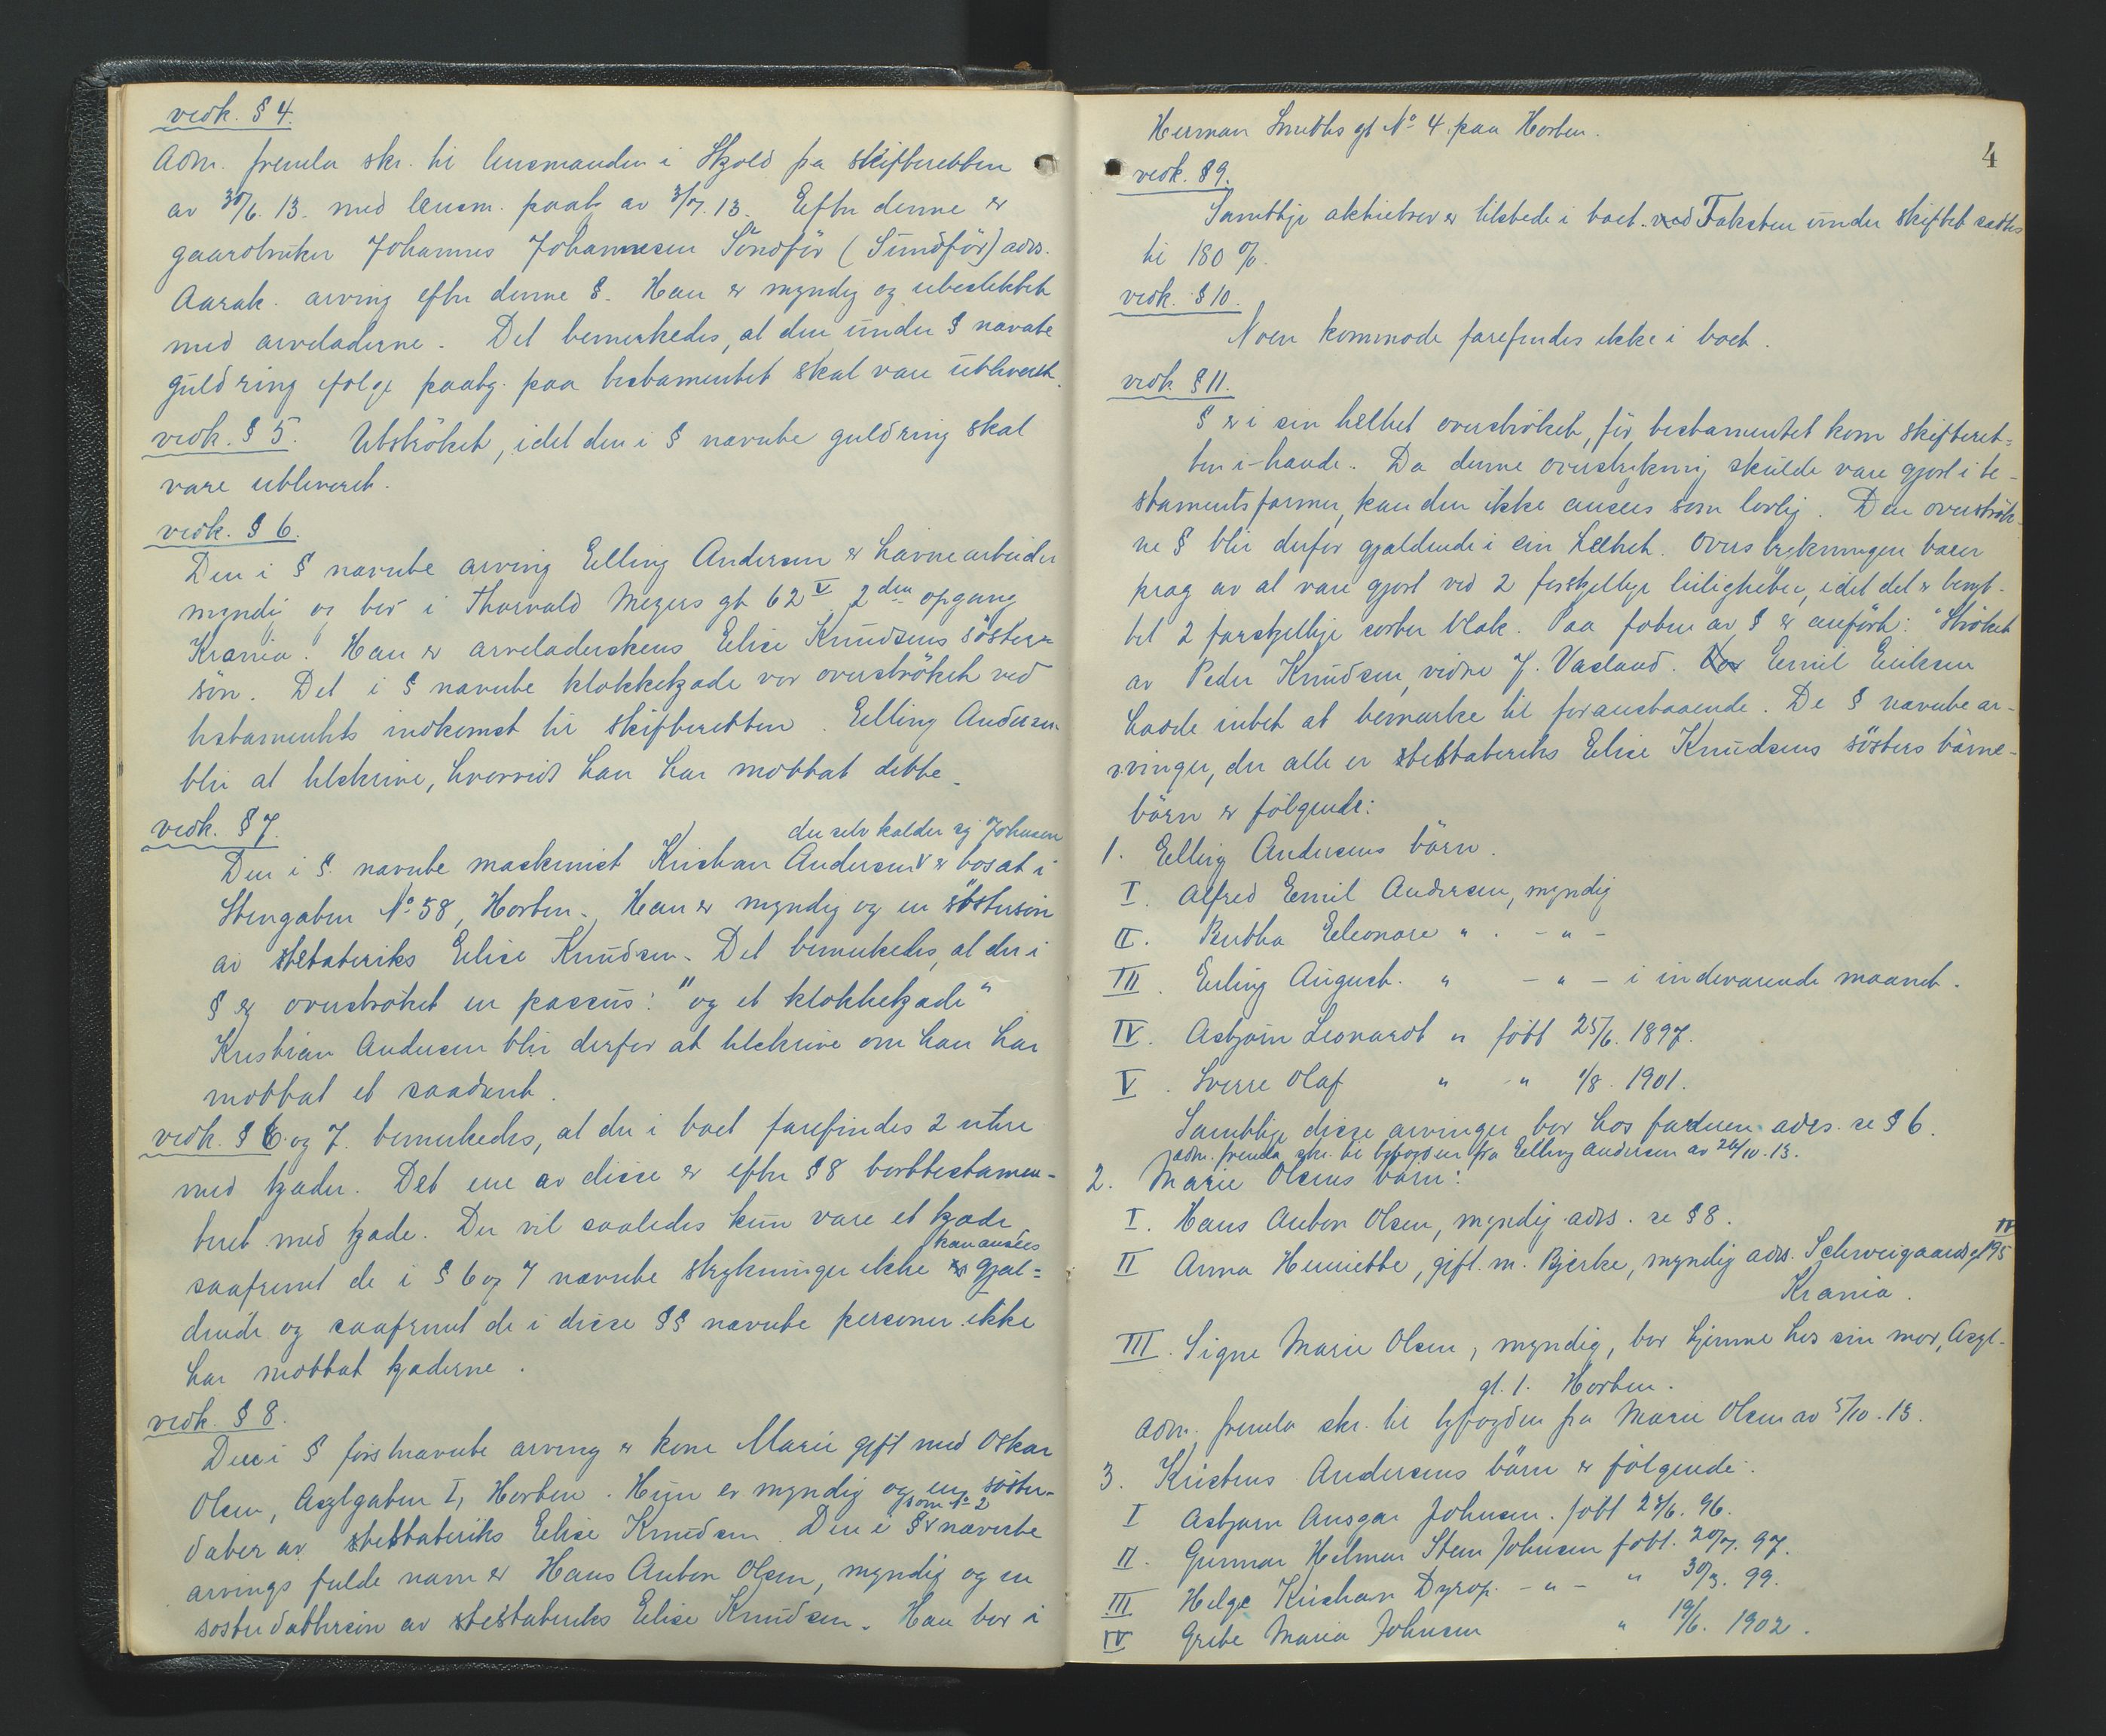 vedk. § 4.
Adm. fremla skr. til lensmanden i Skjold fra skifteretten
av 30/6. 13. med lensm. paat av 3/7. 13. Efter denne er
gaardbruker Johannes Johannesen Söndför (Sundför) adrs.
Aarak. arving efter denne §. Han er myndig og ubeslektet
med arveladerne. Det bemerkedes, at den under § nævnte
guldring ifölge paateg. paa testamentet skal være utleveret.
vedk. § 5. Utströket, idet den i § nævnte guldring skal
være utleveret.
vedk. § 6.
Den i § nævnte arving Elling Andersen er havnearbeider
myndig og bor i Thorvald Meyers gt 62 V 2den opgang
Krania. Han er arveladerskens Elise Knudsens söster-
sön. Det i § nævnte klokkekjæde var overströket ved
testamentets indkomst til skifteretten. Elling Andersen
blir at tilskrive, hvorvidt han har mottat dette.
vedk. § 7.
der selv kalder sig Johnsen
Den i §. nævnte maskinist Kristian Andersen v er bosat i
Stengaten No 58, Horten. Han er myndig og en söstersön
av testatriks Elise Knudsen. Det bemerkedes, at der i
§ er overströket en passus: "og et klokkekjæde"
Kristian Andersen blir derfor at tilskrive om han har
mottat et saadant.
vedk. § 6. og 7. bemerkedes, at der i boet forefindes 2 uhre
med kjæder. Det ene av disse er efter § 8 borttestamen-
teret med kjæde. Der vil saaledes kun være et kjæde
kan ansees
saafremt de i § 6 og 7 nævnte strykninger ikke gjæl=
dende og saafremt de i disse §§ nævnte personer ikke
har mottat kjæderne.
vedk. § 8.
Den i § förstnævnte arving er kone Marie gift med Oskar
Olsen, Asylgaten 1, Horten. Hun er myndig og en söster-
som No 2
datter av testatriks Elise Knudsen. Den i § v nævnte
arvings fulde navn er Hans Anton Olsen, myndig og en
sösterdattersön av testatriks Elise Knudsen. Han bor i
4
Herman Smiths gt No 4. paa Horten.
vedk. § 9.
Samtlige aktiebrev er tilstede i boet. ved Taksten under skiftet sættes
til 180 %.
vedk. § 10.
Noen kommode forefindes ikke i boet.
vedk § 11.
§ er i sin helhet overströket, för testamentet kom skifteret=
ten i hænde. Da denne overstrykning skulde være gjort i te-
stamentsformer, kan den ikke ansees som lovlig. Den overströk-
ne § blir derfor gjældende i sin helhet. Overstrykningen bærer
præg av at være gjort ved 2 forskjellige leiligheter, idet det er benyt-
tet 2 forskjellige sorter blæk. Paa foten av § er anfört: "Ströket
av Peder Knudsen, vidne J. Vasland. Emil Eriksen
hadde intet at bemerke til foranstaaende. De § nævnte ar-
vinger, der alle er testatriks Elise Knudsens sösters börne-
börn er fölgende:
1. Elling Andersens börn.
I. Alfred Emil Andersen, myndig
II. Bertha Eleonore " . - " -
III. Erling August. " - " - i indeværende maaned.
IV. Asbjörn Leonardt " född 25/6. 1897.
V. Sverre Olaf " " 1/8. 1901.
Samtlige disse arvinger bor hos faderen adrs. se § 6.
Adm. fremla skr. til byfogden fra Elling Andersen av 26/10. 13.
2. Marie Olsens börn:
I. Hans Anton Olsen, myndig adrs. se § 8.
II Anna Henriette, gift. m. Bjerke, myndig adrs. Schweigaards gt 95 IV
Krania.
III. Signe Marie Olsen, myndig, bor hjemme hos sin mor, Asyl-
gt. 1. Horten.
Adm. fremla skr. til byfogden fra Marie Olsen av 5/10. 13.
3. Kristens Andersens börn er fölgende:
I Asbjørn Ansgar Johnsen. född 28/6. 96.
II. Gunnar Helmer Sten Johnsen född. 20/7. 97.
III Helge Kristian Dyrop. - " - " 30/3. 99.
IV Grete Maria Johnsen " 19/6. 1902.